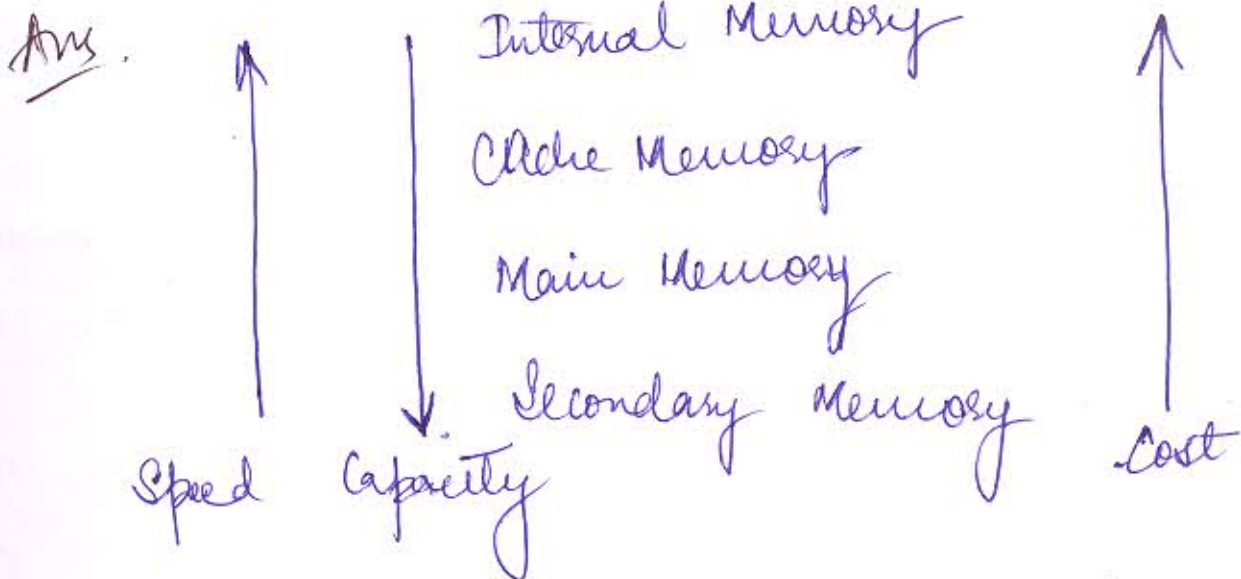 Ans.
Internal Memory
Cache Memory
Main Memory
Secondary Memory
Speed Capacity Cost